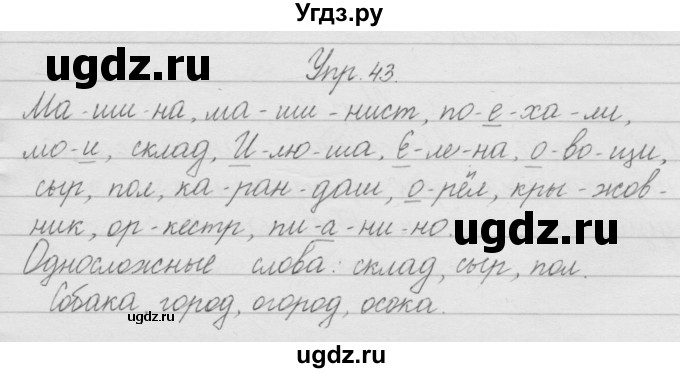 Угдз.ру
ugdz.ru
Упр. 43.
Ма-ши-на, ма-ши-нист, по-е-ха-ли,
мо-и, склад, И-лю-ша, Е-ле-на, о-во-щи,
сыр, пол, ка-ран-даш, о-рёл, кры-жов-
ник, ор-кестр, пи-а-ни-но.
ugdz.ru
ugdz.ru
Односложные слова: склад, сыр, пол.
Собака, город, огород, осока.
ugdz.ru
ugdz.ru
ugdz.ru